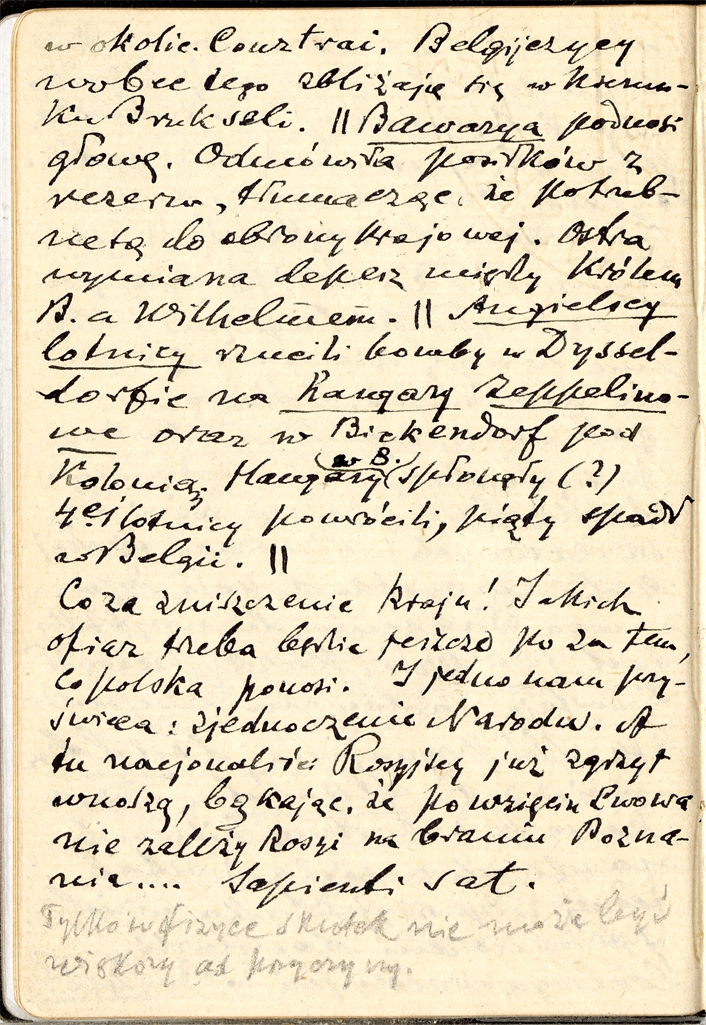 w okolic. Courtrai. Belgijczycy
wobec tego zbliżają się w kierun-
ku Brukseli. || Bawarya podnosi
głowę. Odmówiła posiłków z
rezerw, tłumacząc, że potrzeb-
ne są do obrony krajowej. Ostra
wymiana depesz między Królem
B. a Wilhelmem. || Angielscy
lotnicy rzucili bomby w Dyssel-
dorfie na hangary Zeppelino-
we oraz w Bickendorf pod
Kolonią. Hangary (w B.) spłonęły (?)
4ej lotnicy powrócili, piąty spadł
w Belgii. ||
Co za zniszczenie kraju! Jakich
ofiar trzeba będzie jeszcze po za tem,
co polska ponosi. I jedno nam przy-
świeca: zjednoczenie Narodu. A
tu nacjonaliści Rosyjscy już zgrzyt
wnoszą, bąkając, że po wzięciu Lwowa
nie zależy Rosyi na braniu Pozna-
nia.... Sapienti sat.
Tylko w fizyce skutek nie może być
większy od przyczyny.